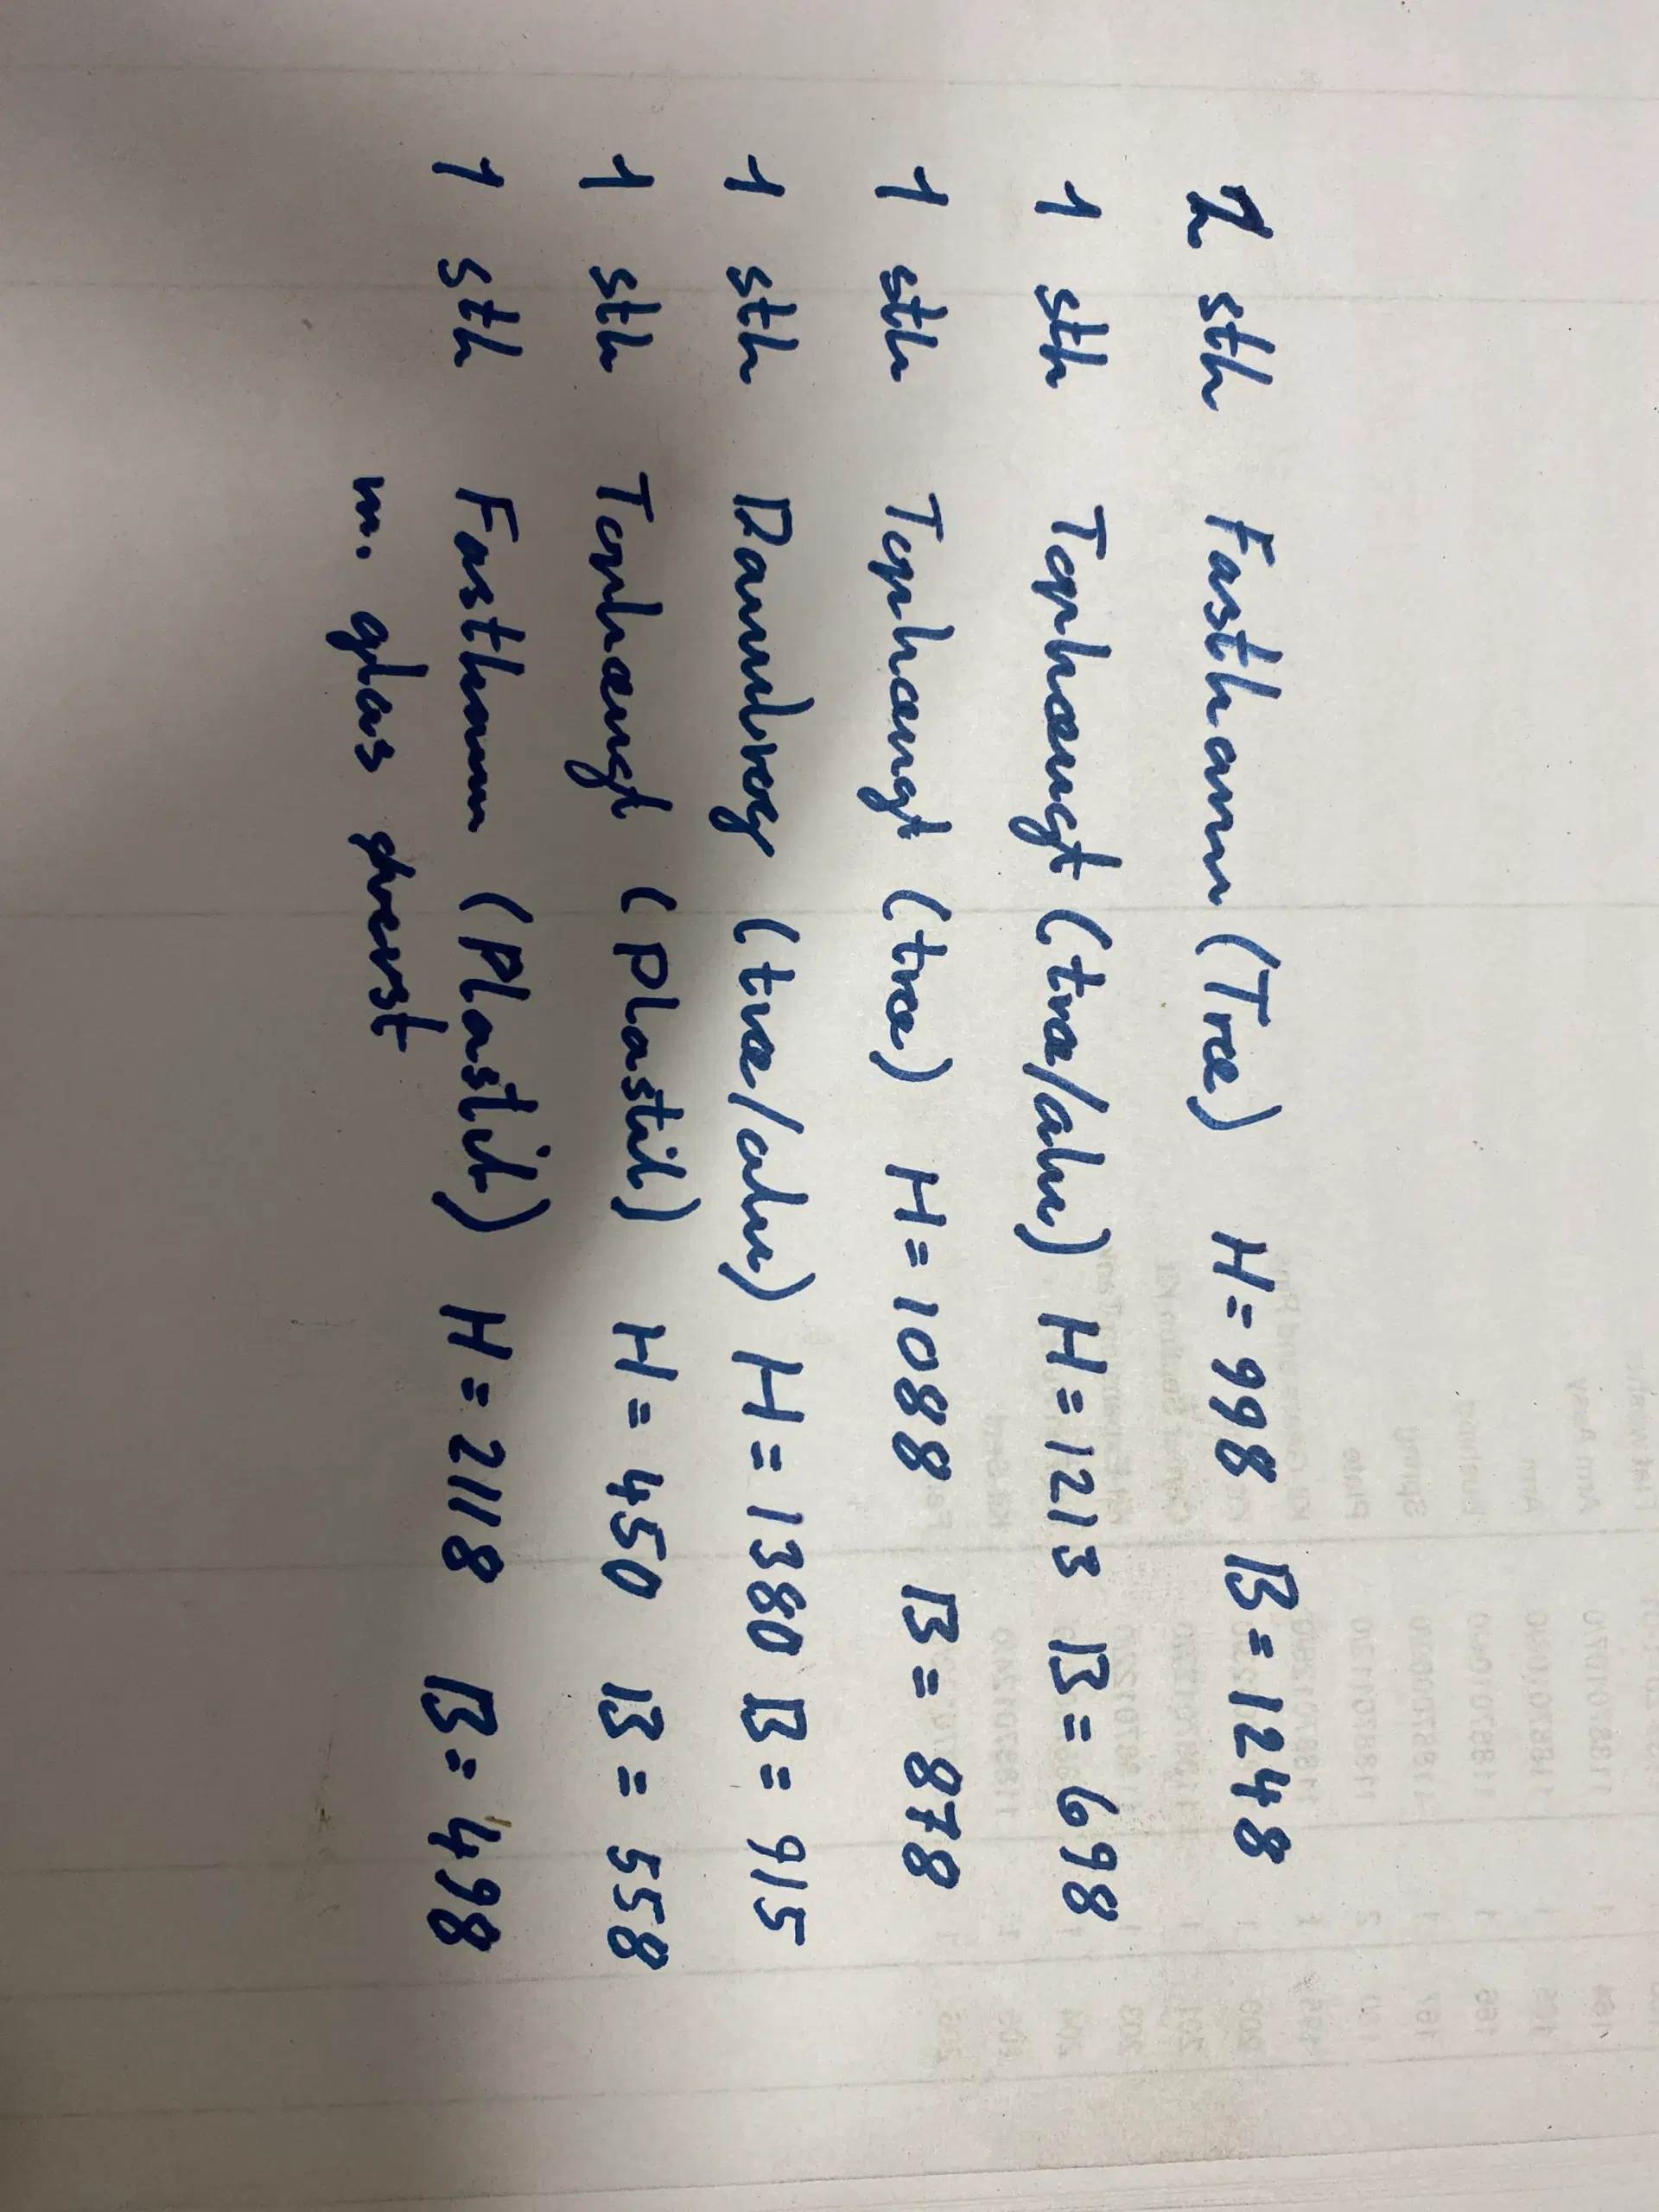 2 stk Fastkarm (Træ) H=998 B=1248
1 stk Tophængt (træ/alu) H=1213 B=698
1 stk Tophængt (træ) H=1088 B=878
1 stk Dannebrog (træ/alu) H=1380 B=915
1 stk Tophængt (Plastik) H=450 B=558
1 stk Fastkarm (Plastik) H=2118 B=498
m. glas øverst